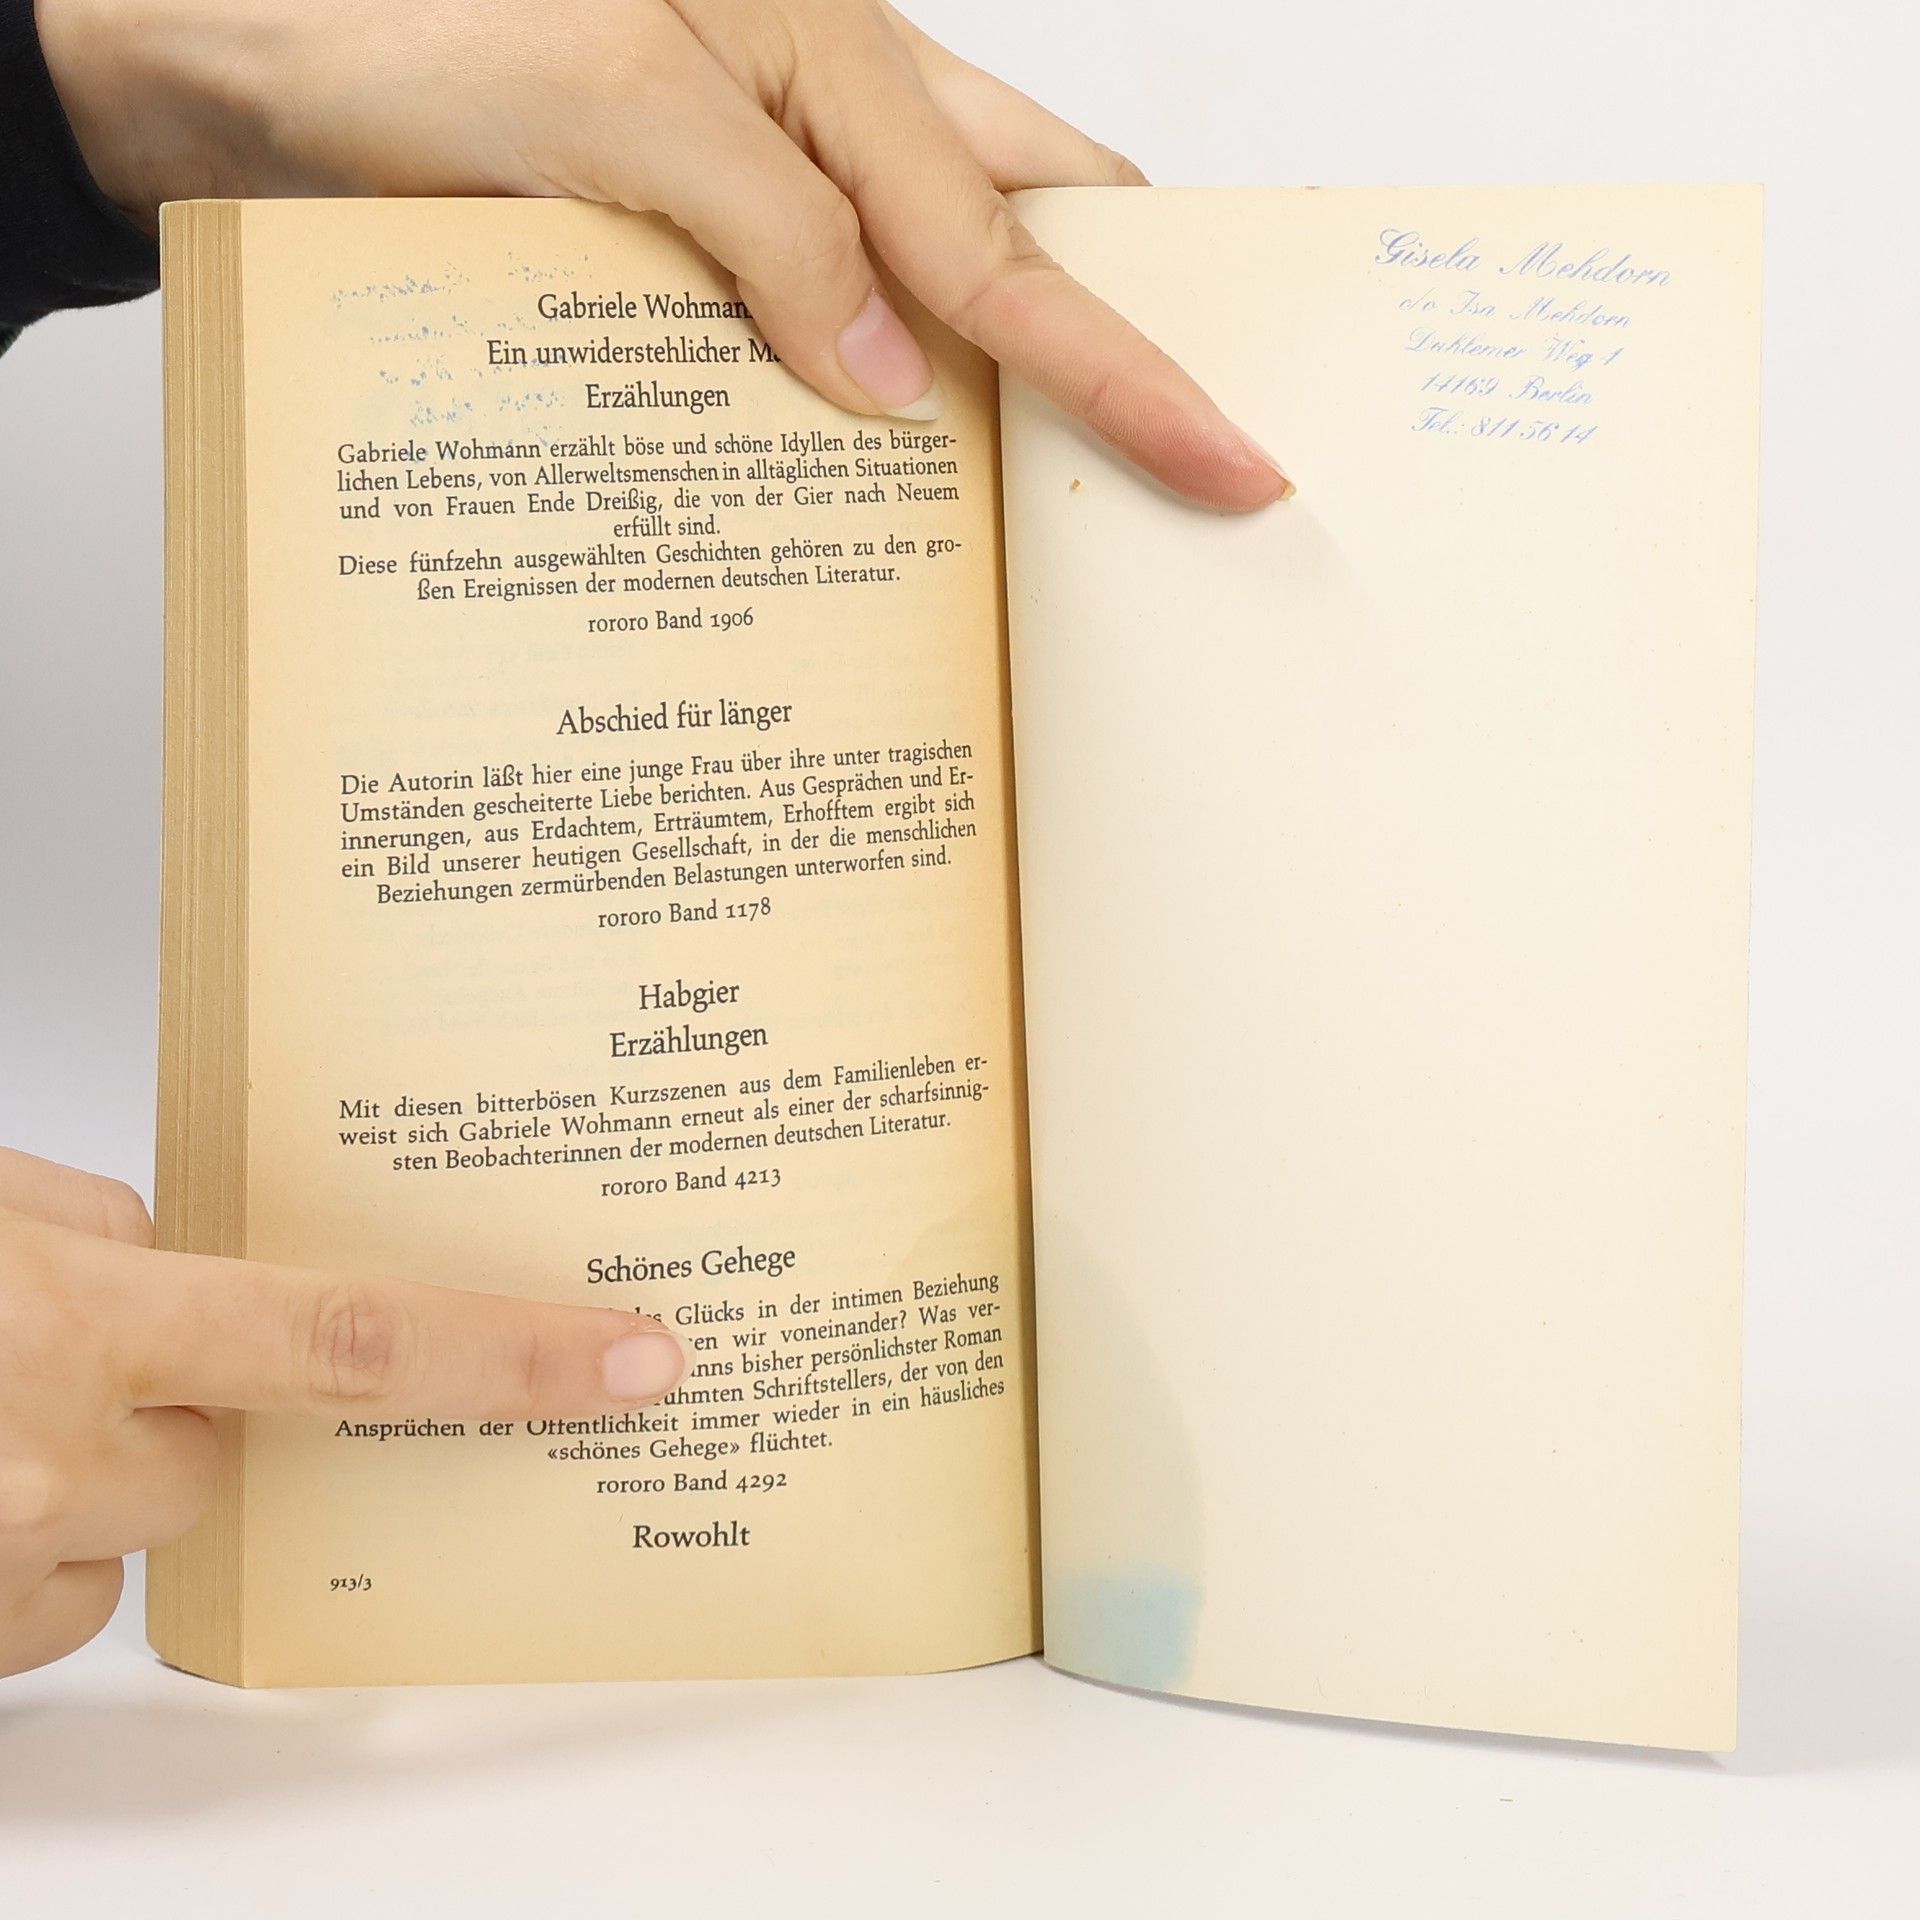 Gabriele Wohmann
Ein unwiderstehlicher
Erzählungen
Gabriele Wohmann erzählt böse und schöne Idyllen des bürger-
lichen Lebens, von Allerweltsmenschen in alltäglichen Situationen
und von Frauen Ende Dreißig, die von der Gier nach Neuem
erfüllt sind.
Diese fünfzehn ausgewählten Geschichten gehören zu den gro-
ßen Ereignissen der modernen deutschen Literatur.
rororo Band 1906
Abschied für länger
Die Autorin läßt hier eine junge Frau über ihre unter tragischen
Umständen gescheiterte Liebe berichten. Aus Gesprächen und Er-
innerungen, aus Erdachtem, Erträumtem, Erhofftem ergibt sich
ein Bild unserer heutigen Gesellschaft, in der die menschlichen
Beziehungen zermürbenden Belastungen unterworfen sind.
rororo Band 1178
Habgier
Erzählungen
Mit diesen bitterbösen Kurzszenen aus dem Familienleben er-
weist sich Gabriele Wohmann erneut als einer der scharfsinnig-
sten Beobachterinnen der modernen deutschen Literatur.
rororo Band 4213
Schönes Gehege
Glücks in der intimen Beziehung
wir voneinander? Was ver-
bisher persönlichster Roman
Schriftstellers, der von den
Ansprüchen der Öffentlichkeit immer wieder in ein häusliches
«schönes Gehege» flüchtet.
rororo Band 4292
Rowohlt
913/3
Gisela Mehdorn
c/o Isa Mehdorn
Weg 1
14169 Berlin
Tel.: 811 56 14